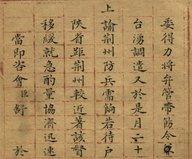 委得力將弁管帶飭令
台湧調遣又於是月二十
上
諭荊州防兵需餉若待戶
陝省距荊州較近著該督
移緩就急酌量協濟迅速
當即咨會
於